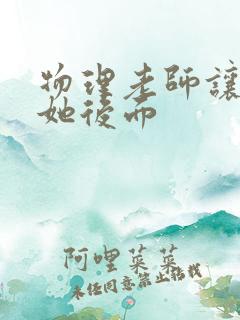 物理老師讓
她後而
阿哩菜菜
未经同意禁止转载